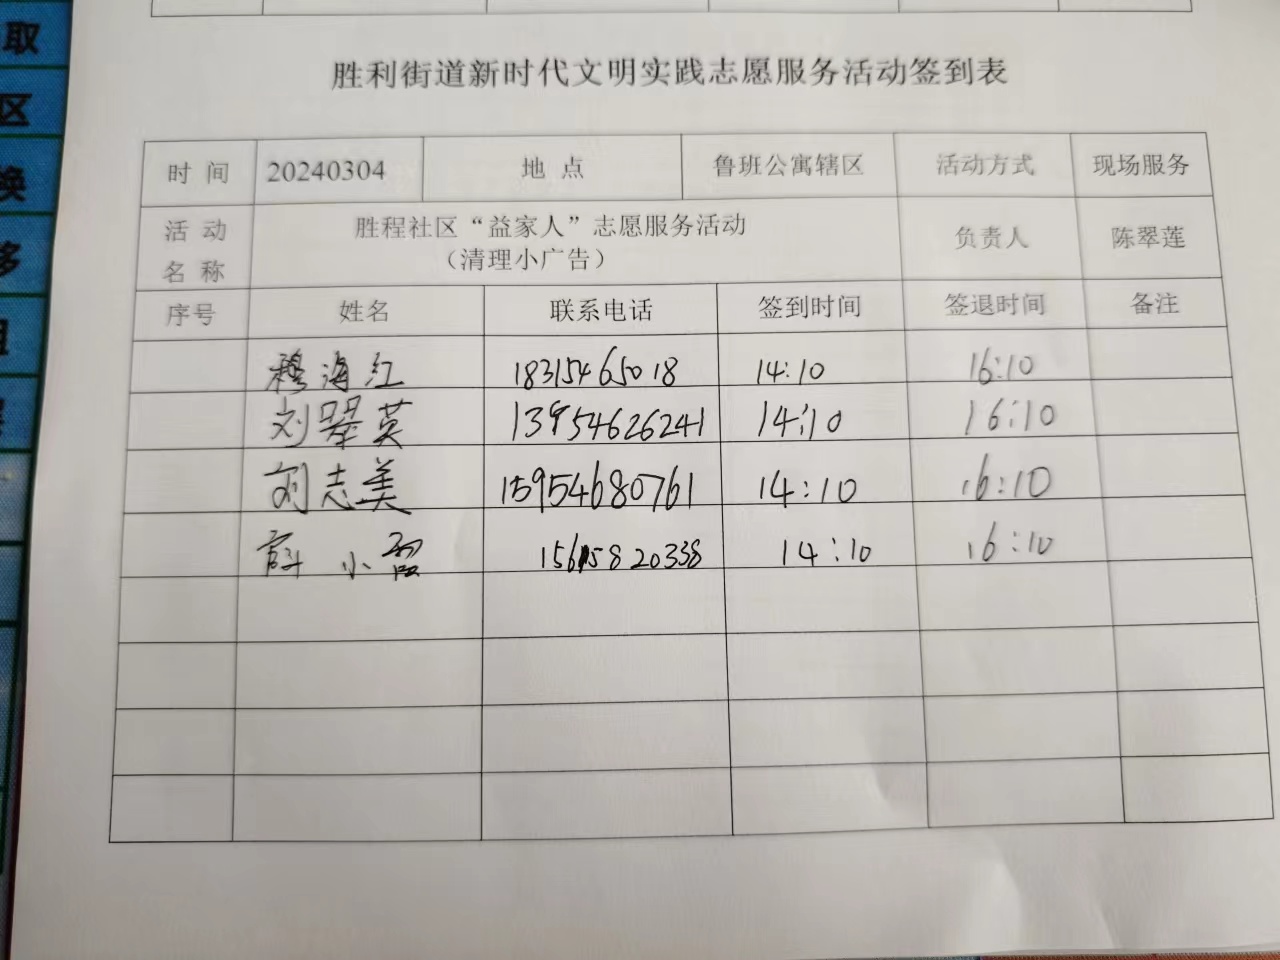 取
区
换
多
胜利街道新时代文明实践志愿服务活动签到表
时 间 20240304 地 点 鲁班公寓辖区 活动方式 现场服务
活 动 名 称 胜程社区“益家人”志愿服务活动 负责人 陈翠莲
（清理小广告）
序号 姓名 联系电话 签到时间 签退时间 备注
穆海红 18315465018 14:10 16:10
刘翠英 13954626241 14:10 16:10
刘志美 15954680761 14:10 16:10
小 15615820338 14:10 16:10